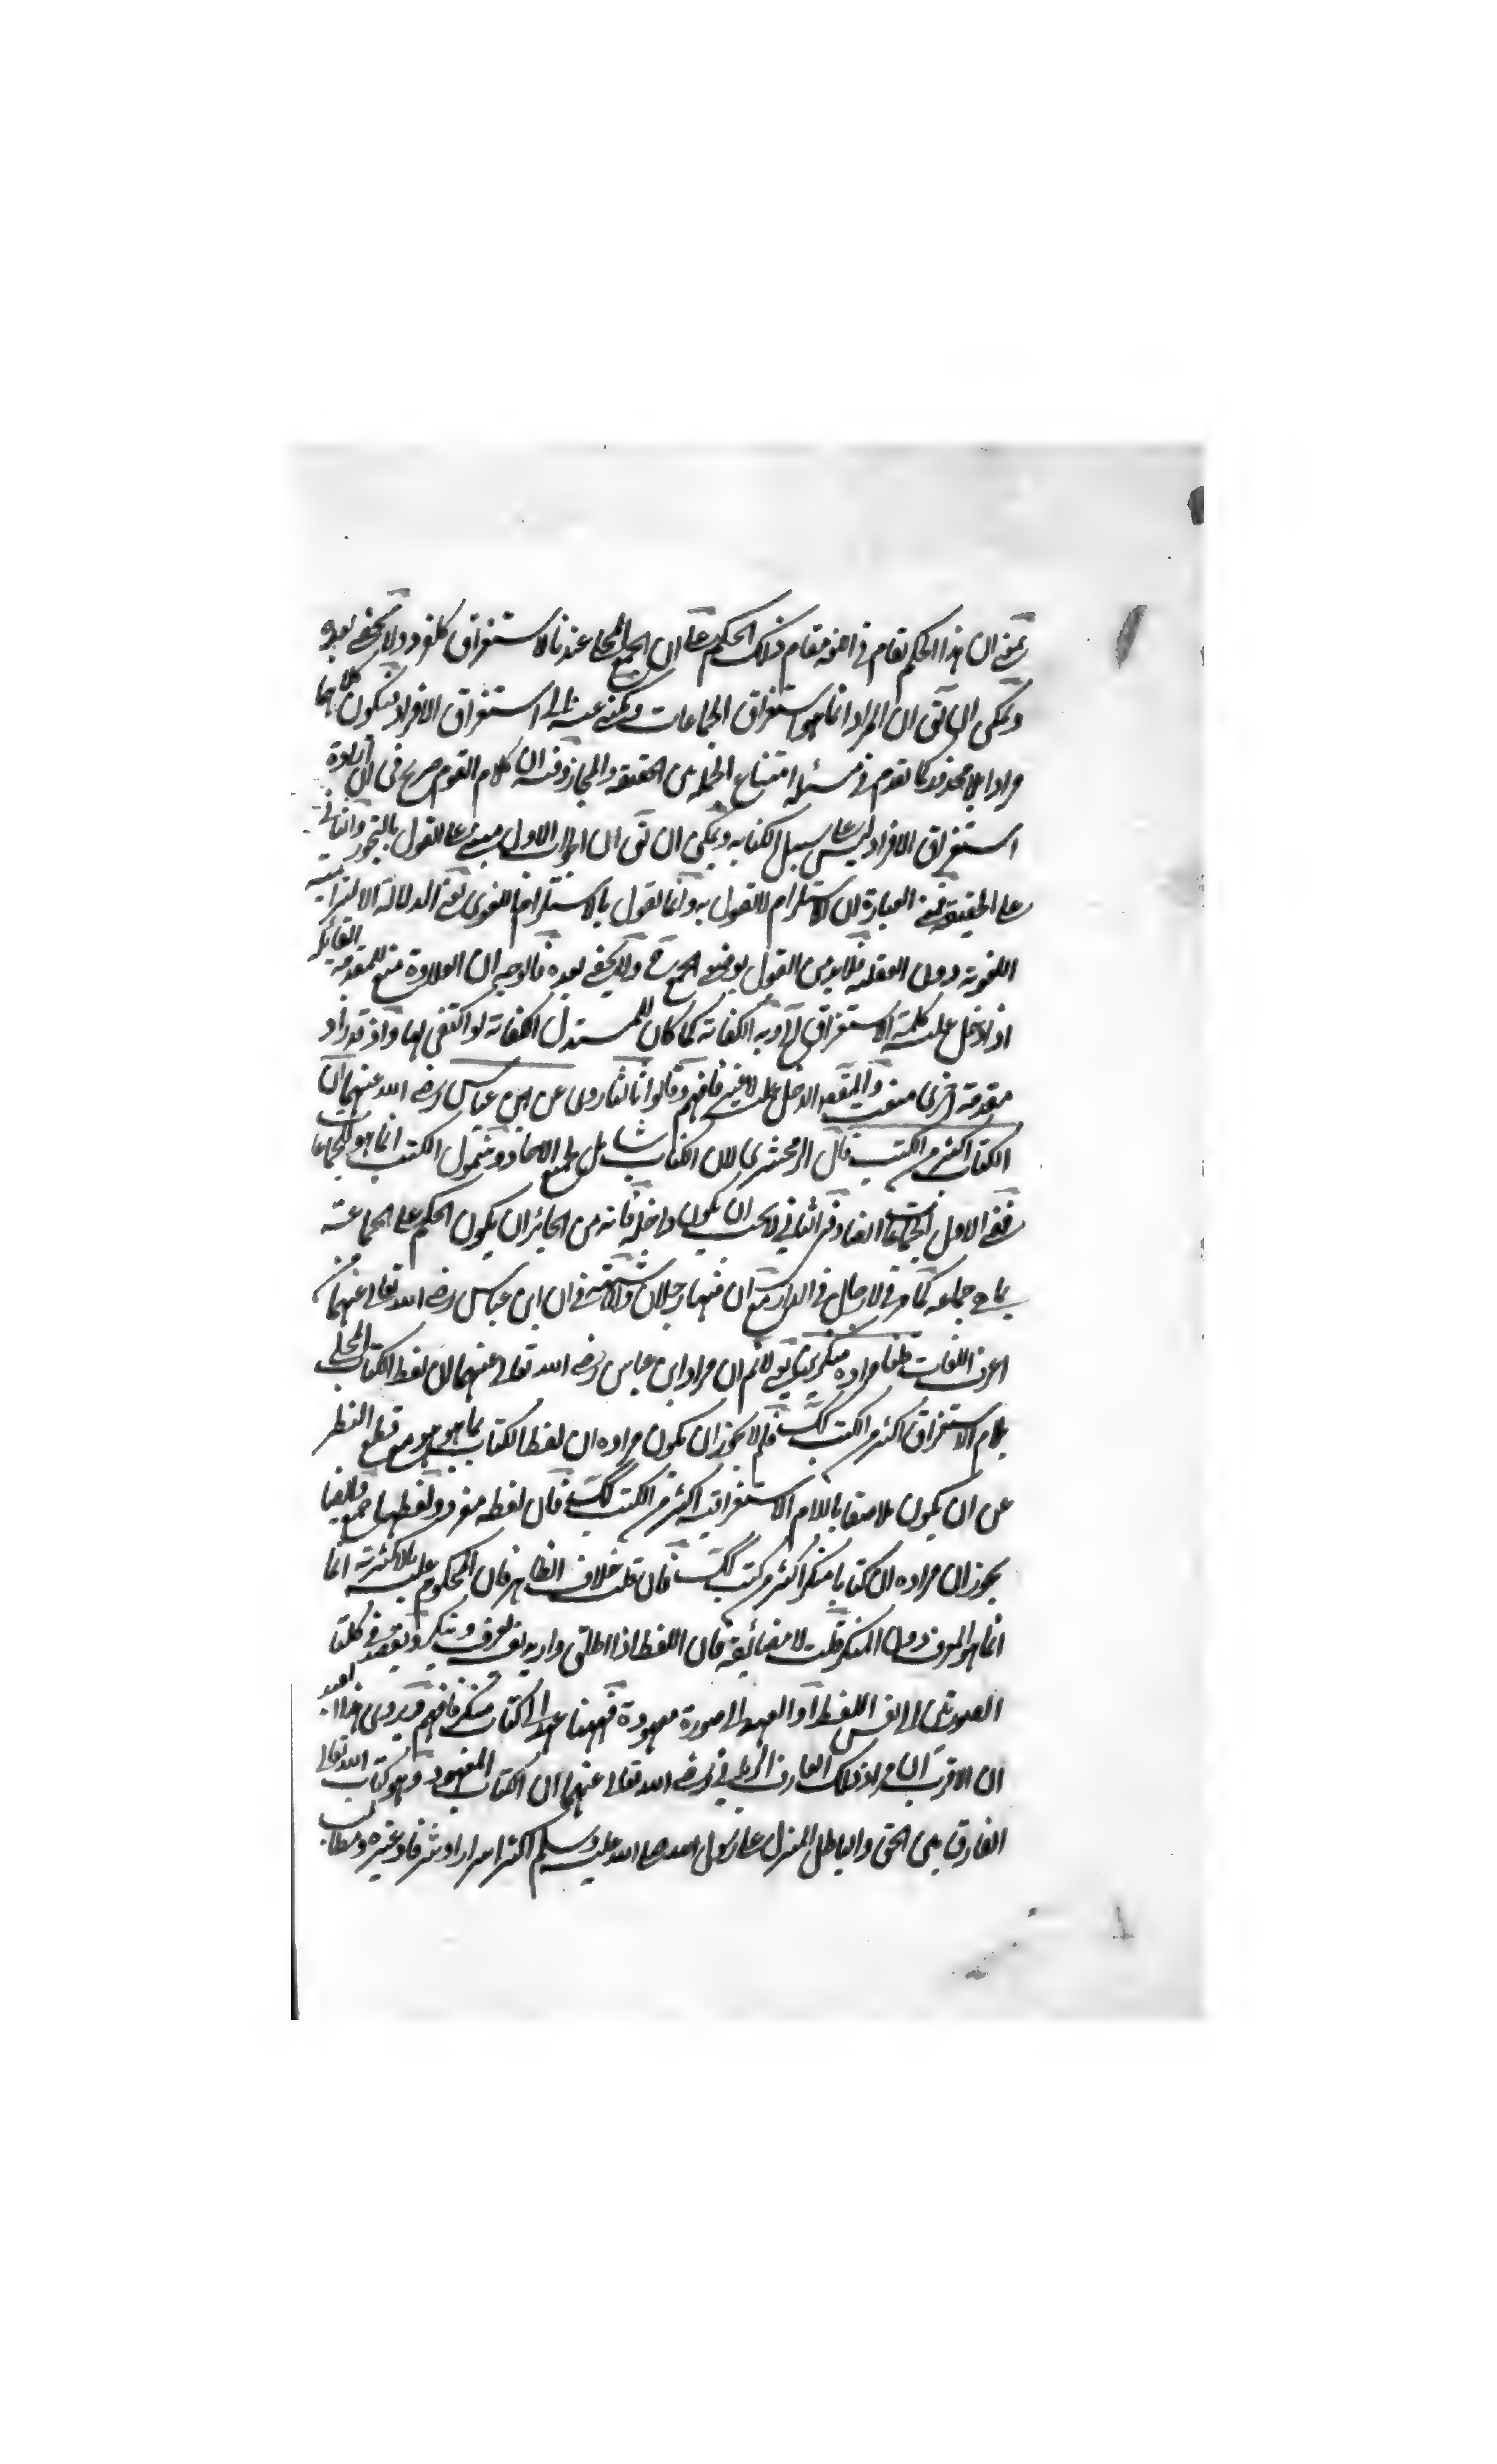 يعني ان هذا الحكم تقام في اخيه مقام ذلك الحكم على ان الجمع المحلى عندنا لاستغراق كلفرد ولا يخفى بعده
ويمكن ان يق ان المراد انما هو استغراق الجماعات ويكنى عنه الى استغراق الافراد فيكون كلاهما
مرادا بلا محذور كما تقدم في مسئلة امتناع الجمع بين الحقيقة والمجاز وفيه ان كلام القوم صريح في ان ارادة
استغراق الافراد ليس على سبيل الكناية ويمكن ان يق ان الجواب الاول مبني على القول بالتجوز والثاني
على الحقيقة فمعنى العبارة ان الاستلزام لا نقول به وانما نقول بالاستلزام اللغوي يعني الدلالة الالتزامية
اللغوية دون العقلية فلا بد من القول بوضع الجمع ولا يخفى بعده فالوجه ان العلاوة منع للمقدمة القائلة
اذا دخل عليه كلمة الاستغراق الى وبه الكفاية كما كان للمستدل الكفاية لو اكتفى بها واذ قد زاد
مقدمة اخرى منعت والمقصود الدخل عليه لا غير فافهم وقالوا ثالثا روى عن ابن عباس رضي الله عنهما ان
الكتاب اكثر من الكتب قال الزمخشري لان الكتاب شامل لجميع الاحاد وشمول الكتب انما هو للجماعات
ففي الاول الجماعات ايضا وفي الثاني لا يجب ان يكون داخلة فانه من الجائز ان يكون الحكم على الجماعة
بما هي جماعة كما في لا رجال في الدار مع ان فيها رجلان ولا شبهة في ان ابن عباس رضي الله تعالى عنهما من
اعرف اللغات قلنا مراده منكر كتاب لا نم ان مراد ابن عباس رضي الله تعالى عنهما ان لفظ الكتاب المحلى
بلام الاستغراق اكثر من الكتب كك فلم لا يجوز ان يكون مراده ان لفظ الكتاب بما هو هو مع قطع النظر
عن ان يكون ملاصقا باللام الاستغراقية اكثر من الكتب كك فان لفظه مفرد ولفظها جمع وايضا
يجوز ان مراده ان كتابا منكرا اكثر من كتب كك فان قلت خلاف الظاهر فان المحكوم عليه بالاكثرية انما
انما هو المعرف دون المنكر قلت لا مضائقة فان اللفظ اذا اطلق واريد يعرف وينكر ويقصد في كلتا
الصورتين الى نفس اللفظ او العهد الى صورة معهودة فههنا عهد الى كتاب منكر فافهم ويروى هذا العبد
ان الاقرب ان مراد ذلك العارف الرباني رضي الله تعالى عنهما ان الكتاب المعهود وهو كتاب الله تعالى
الفارق بين الحق والباطل المنزل على رسول الله صلى الله عليه وسلم اكثر اسرارا وشرفا وغيره ومطالب